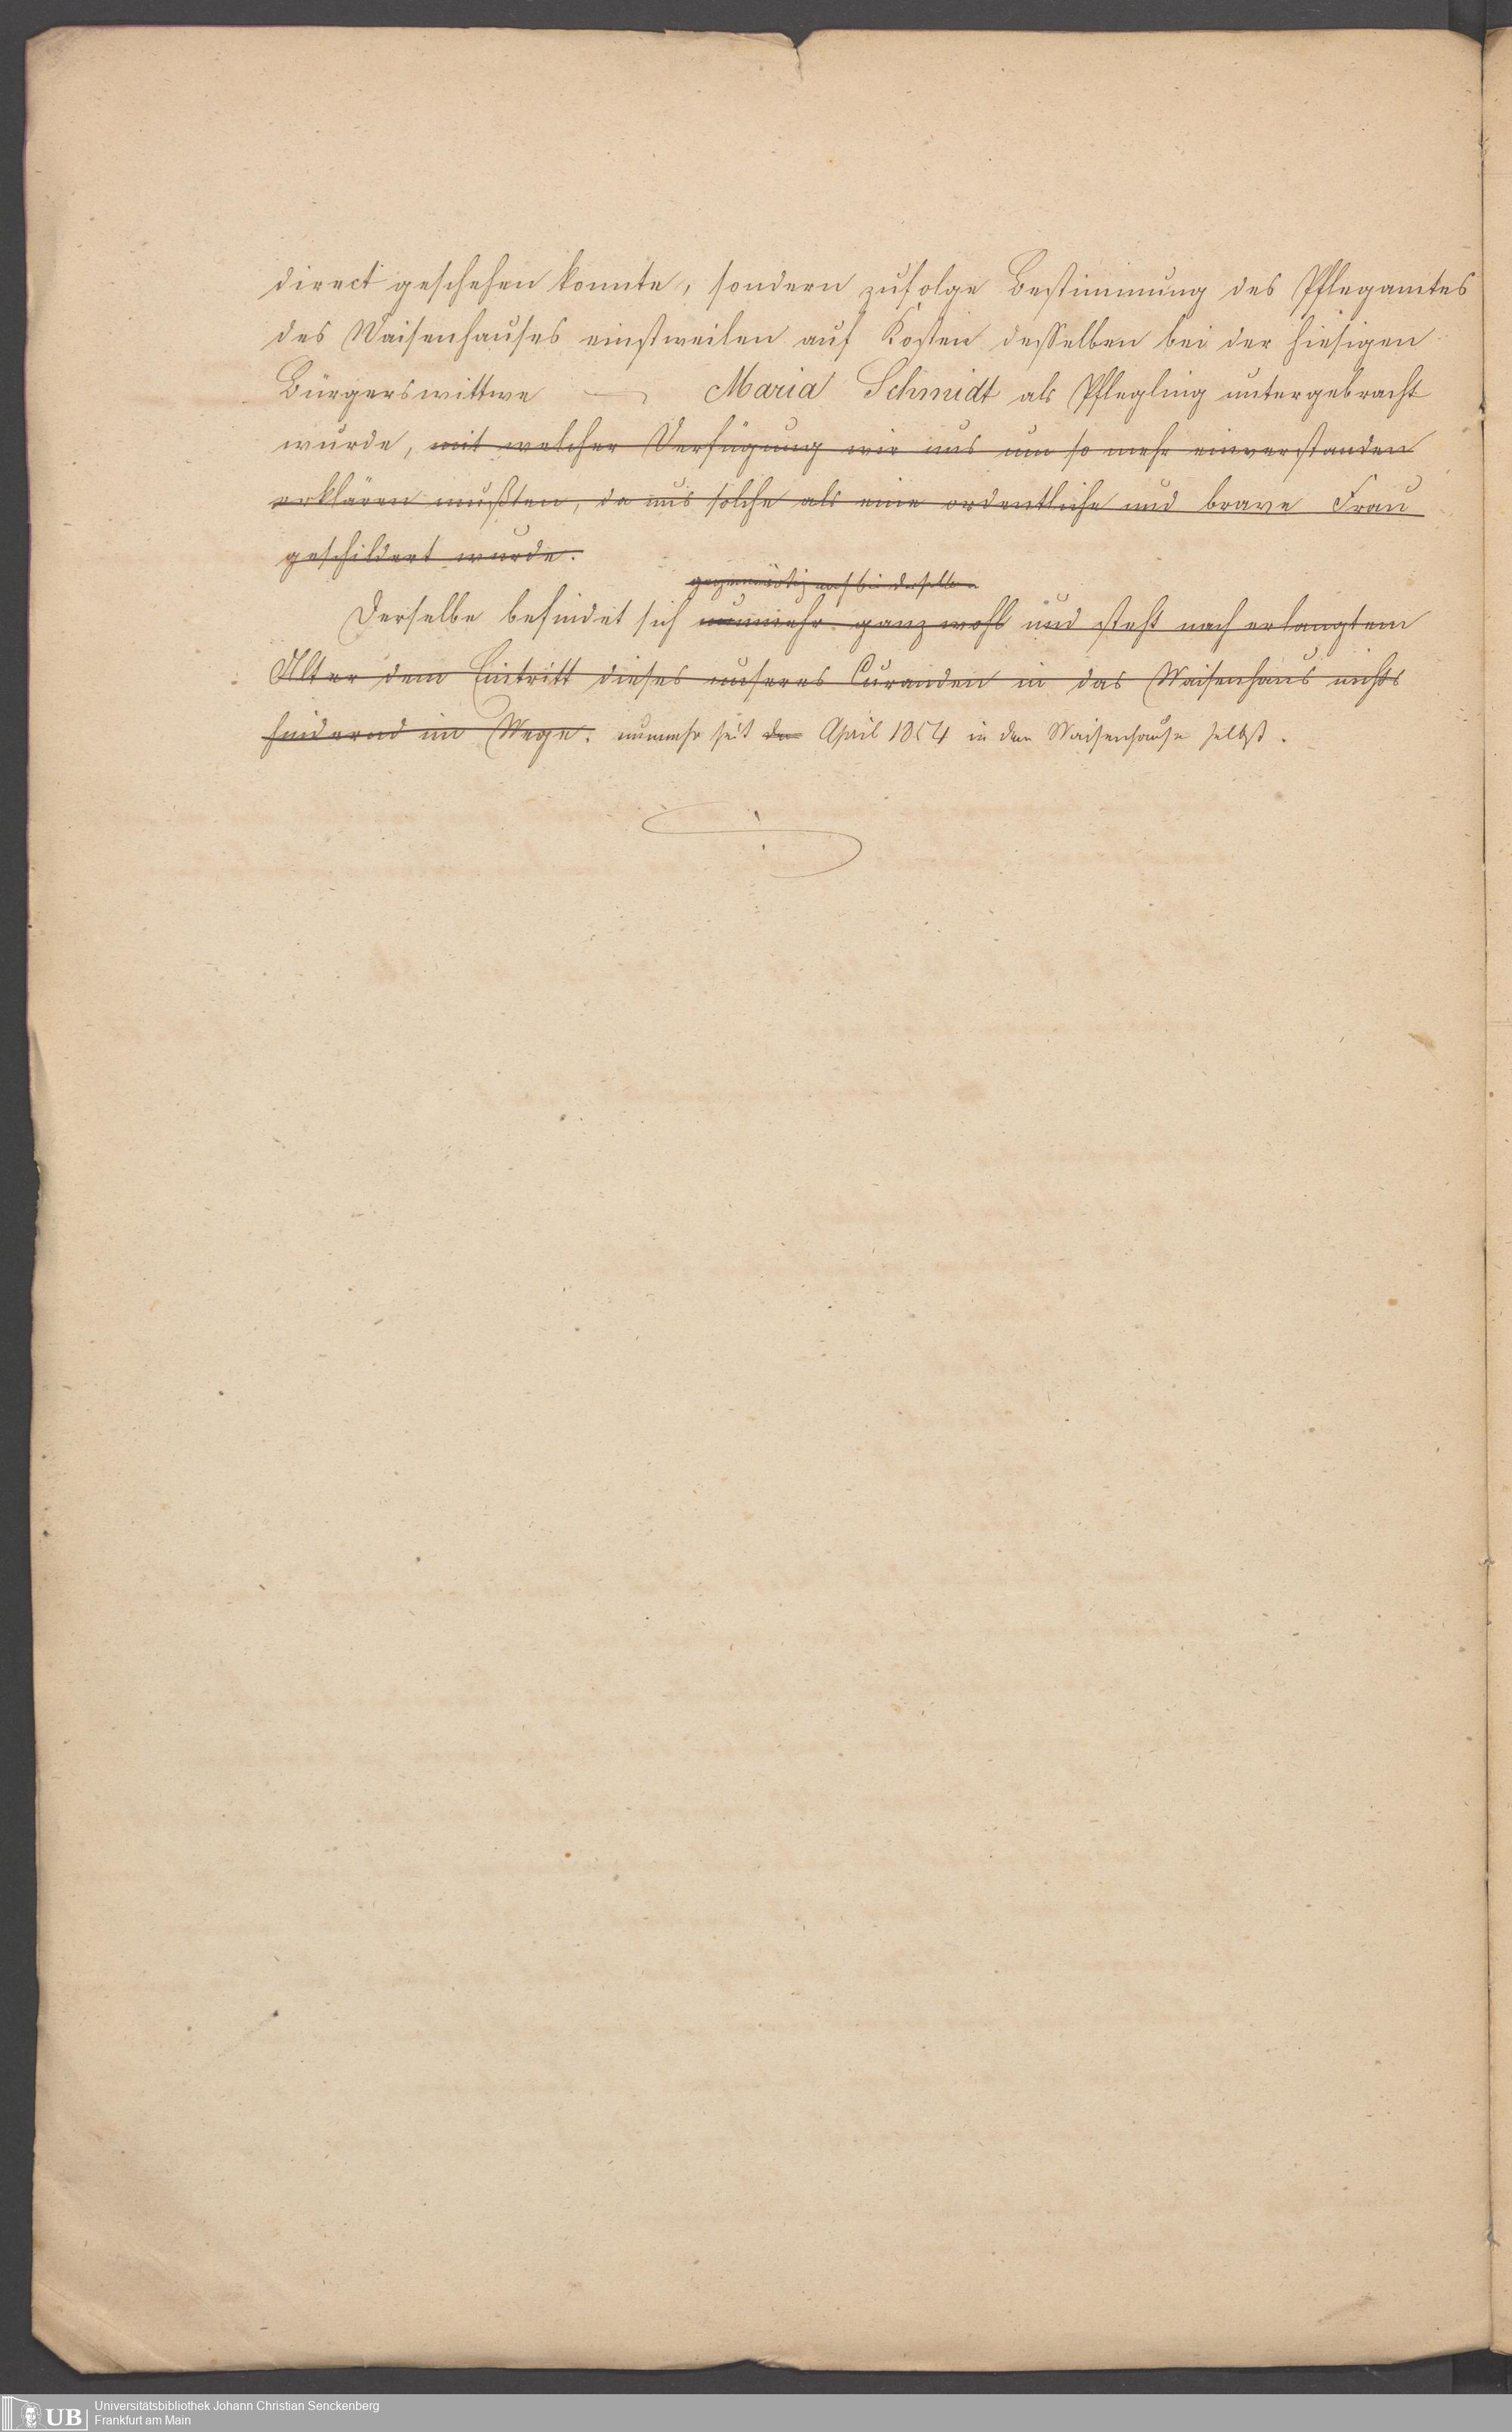 direct geschehen konnte, sondern zufolge Bestimmung des Pflegamtes
des Waisenhauses einstweilen auf Kosten desselben bei der hiesigen
Bürgerswittwe — Maria Schmidt als Pflegling untergebracht
wurde, mit welcher Verfügung wir uns um so mehr einverstanden
erklären mußten, da uns solche als eine ordentliche und brave Frau
geschildert wurde.
gegenwärtig noch bei derselben
Derselbe befindet sich nunmehr ganz wohl und steht nach erlangtem
Alter dem Eintritt dieses unseres Curanden in das Waisenhaus nichts
hindernd im Wege. nunmehr seit dem April 1854 in dem Waisenhause selbst.
UB
Universitätsbibliothek Johann Christian Senckenberg
Frankfurt am Main